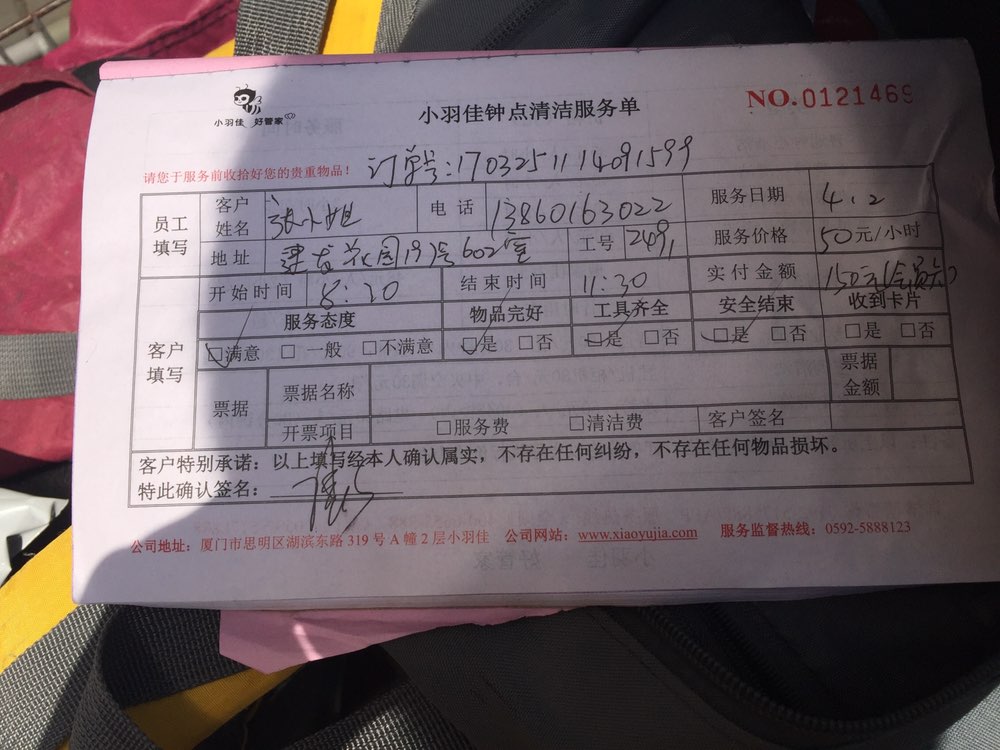 小羽佳 好管家
小羽佳钟点清洁服务单
NO.0121469
请您于服务前收拾好您的贵重物品！
订单号:1703251114091599
员工填写 客户姓名 张小姐 电话 13860163022 服务日期 4.2
地址 建龙花园19号602室 工号 2491 服务价格 50元/小时
客户填写 开始时间 8:20 结束时间 11:30 实付金额 150元(会员卡)
服务态度 物品完好 工具齐全 安全结束 收到卡片
□满意 □一般 □不满意 □是 □否 □是 □否 □是 □否 □是 □否
票据 票据名称 票据金额
开票项目 □服务费 □清洁费 客户签名
客户特别承诺：以上填写经本人确认属实，不存在任何纠纷，不存在任何物品损坏。
特此确认签名：
公司地址：厦门市思明区湖滨东路319号A幢2层小羽佳 公司网站：www.xiaoyujia.com 服务监督热线：0592-5888123